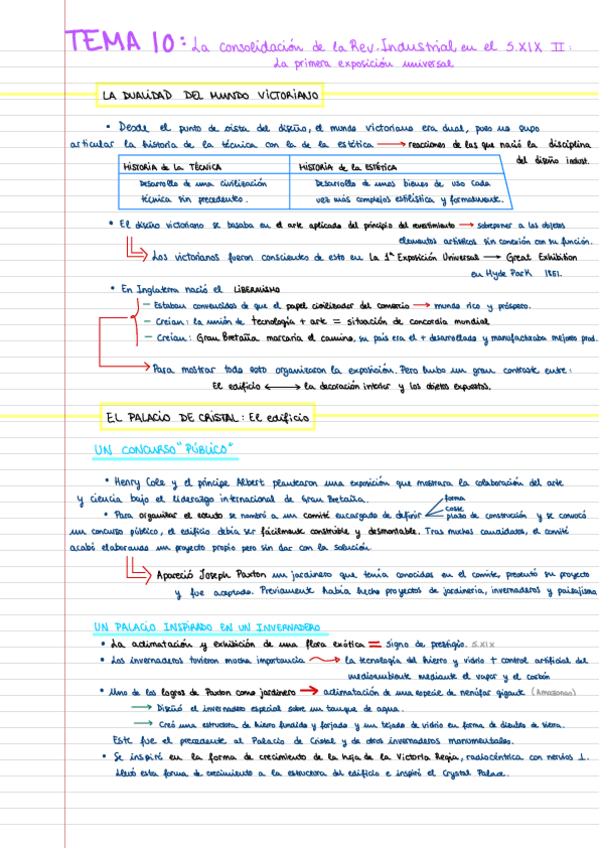 TEMA 10: La consolidación de la Rev. Industrial en el S.XIX II:
La primera exposición universal
LA DUALIDAD DEL MUNDO VICTORIANO
• Desde el punto de vista del diseño, el mundo victoriano era dual, pues no supo
articular la historia de la técnica con la de la estética → reacciones de las que nació la disciplina
del diseño indust.
HISTORIA de la TÉCNICA
HISTORIA de la ESTÉTICA
Desarrollo de una civilización
Desarrollo de unos bienes de uso cada
técnica sin precedente.
vez más complejos estilística y formalmente.
• El diseño victoriano se basaba en el arte aplicado del principio del revestimiento → sobreponer a los objetos
elementos artísticos sin conexión con su función.
Los victorianos fueron conscientes de esto en la 1ª Exposición Universal → Great Exhibition
en Hyde Park 1851.
• En Inglaterra nació el LIBERALISMO
- Estaban convencidos de que el papel civilizador del comercio → mundo rico y próspero.
- Creían: la unión de tecnología + arte = situación de concordia mundial
- Creían: Gran Bretaña marcaría el camino, su país era el + desarrollado y manufacturaba mejores prod.
Para mostrar todo esto organizaron la exposición. Pero hubo un gran contraste entre:
El edificio ↔ la decoración interior y los objetos expuestos.
EL PALACIO DE CRISTAL: El edificio
UN CONCURSO "PÚBLICO"
• Henry Cole y el príncipe Albert plantearon una exposición que mostrara la colaboración del arte
y ciencia bajo el liderazgo internacional de Gran Bretaña.
forma
coste
• Para organizar el evento se nombró a un comité encargado de definir plazo de construcción y se convocó
un concurso público, el edificio debía ser fácilmente construible y desmontable. Tras muchos candidatos, el comité
acabó elaborando un proyecto propio pero sin dar con la solución.
Apareció Joseph Paxton un jardinero que tenía conocidos en el comite, presentó su proyecto
y fue aceptado. Previamente había hecho proyectos de jardinería, invernaderos y paisajismo
UN PALACIO INSPIRADO EN UN INVERNADERO
• La aclimatación y exhibición de una flora exótica = signo de prestigio. S.XIX
• Los invernaderos tuvieron mucha importancia → la tecnología del hierro y vidrio + control artificial del
medioambiente mediante el vapor y el carbón
• Uno de los logros de Paxton como jardinero → aclimatación de una especie de nenúfar gigante (Amazonas)
→ Diseñó el invernadero especial sobre un tanque de agua.
→ Creó una estructura de hierro fundido y forjado y un tejado de vidrio en forma de dientes de sierra.
Este fue el precedente al Palacio de Cristal y de otros invernaderos monumentales.
• Se inspiró en la forma de crecimiento de la hoja de la Victoria Regia, radiocéntrica con nervios ⊥.
Llevó esta forma de crecimiento a la estructura del edificio e inspiró el Crystal Palace.